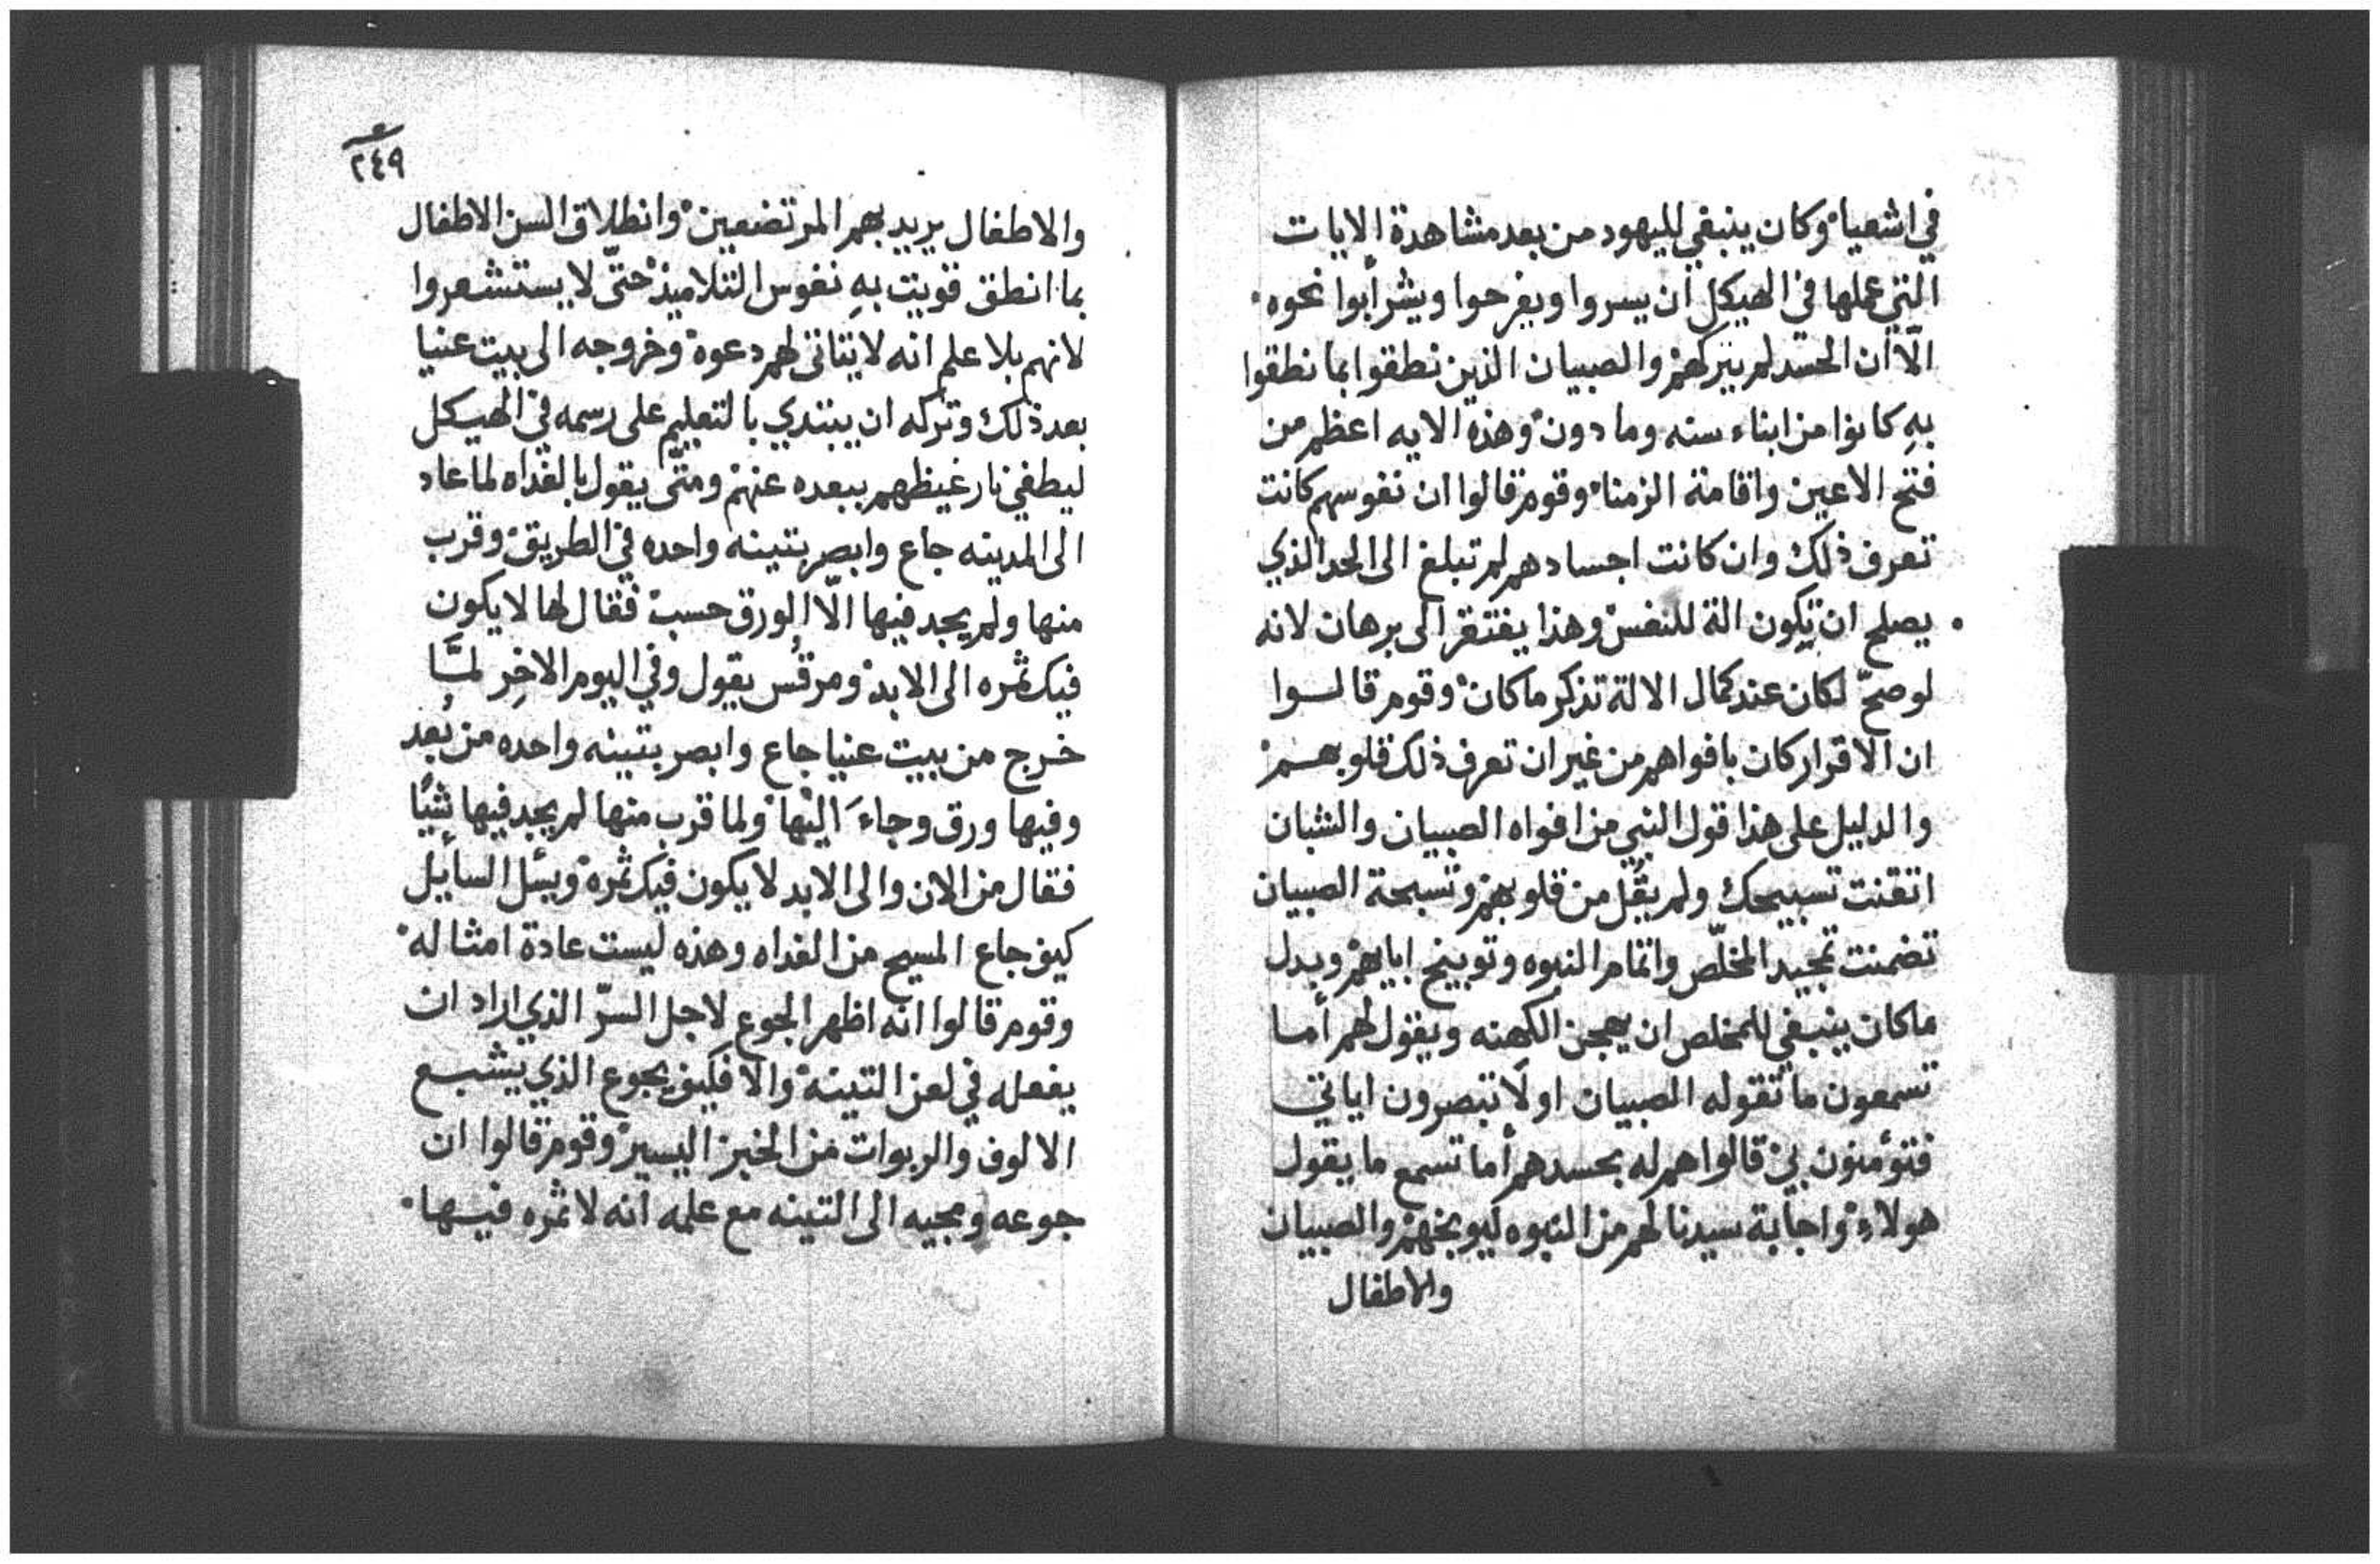 في اشعيا وكان ينبغي لليهود من بعد مشاهدة الايات
التي عملها في الهيكل ان يسروا ويفرحوا ويشرأبوا نحوه
الّا ان الحسد لم يتركهم والصبيان الذين نطقوا بما نطقوا
بهِ كانوا من ابناء سنه وما دون وهذه الايه اعظم من
فتح الاعين واقامة الزمنا وقوم قالوا ان نفوسهم كانت
تعرف ذلك وان كانت اجسادهم لم تبلغ الى الحد الذي
يصلح ان تكون الة للنفس وهذا يفتقر الى برهان لانه
لو صحّ لكان عند كمال الالة تذكر ما كان وقوم قالوا
ان الاقرار كان بافواههم من غير ان تعرف ذلك قلوبهم
والدليل على هذا قول النبي من افواه الصبيان والشبان
اتقنت تسبيحك ولم يقُل من قلوبهم وتسبحة الصبيان
تضمنت تمجيد المخلّص واتمام النبوه وتوبيخ ابايهم وبدل
ما كان ينبغي للمخلص ان يهجن الكهنه ويقول لهم أما
تسمعون ما تقوله الصبيان اولا تبصرون اياتي
فتؤمنون بي قالوا هم له بحسدهم أما تسمع ما يقول
هولاء واجابة سيدنا لهم من النبوه ليوبخهم والصبيان
والاطفال
٢٤٩
والاطفال يريد بهم المرتضعين وانطلاق السن الاطفال
بما انطق قويت بهِ نفوس التلاميذ حتّى لا يستشعروا
لانهم بلا علم انه لا يتاتى لهم دعوة وخروجه الى بيت عنيا
بعد ذلك وتركه ان يبتدي بالتعليم على رسمه في الهيكل
ليطفي نار غيظهم ببعده عنهم ومتّى يقول بالغداه لما عاد
الى المدينه جاع وابصر بتينه واحده في الطريق وقرب
منها ولم يجد فيها الّا الورق حسب فقال لها لا يكون
فيك ثمره الى الابد ومرقُس يقول وفي اليوم الاخِر لمّا
خرج من بيت عنيا جاع وابصر بتينه واحده من بُعد
وفيها ورق وجاءَ اليْها ولما قرب منها لم يجد فيها شيًا
فقال من الان والى الابد لا يكون فيك ثمره ويسٔل السايل
كيف جاع المسيح من الغداه وهذه ليست عادة امثاله
وقوم قالوا انه اظهر الجوع لاجل السرّ الذي اراد ان
يفعله في لعن التينه والا فكيف يجوع الذي يشبع
الالوف والربوات من الخبز اليسير وقوم قالوا ان
جوعه ومجيه الى التينه مع علمه انه لا ثمره فيها